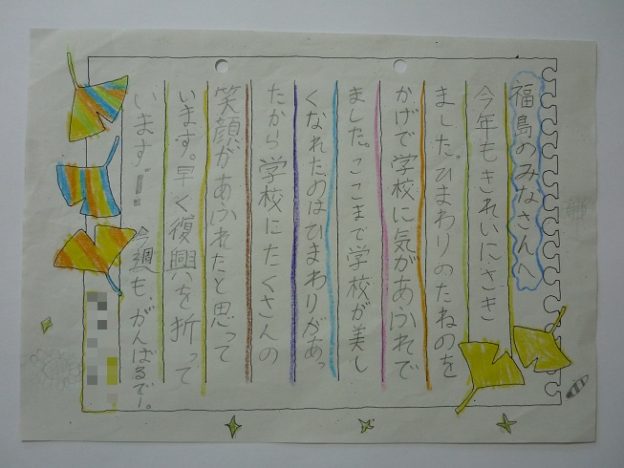 福島のみなさんへ
今年もきれいにさき
ました。ひまわりのたねのを
かげで学校に気があふれで
ました。ここまで学校が美し
くなれたのはひまわりがあっ
たから学校にたくさんの
笑顔があふれたと思って
います。早く復興を折って
います!! 今週も、がんばるでー。